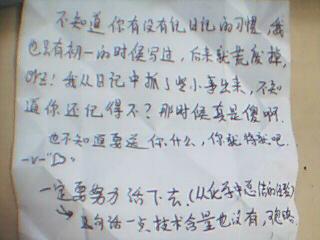 不知道你有没有记日记的习惯 我
也只有初一的时候写过，后来就荒废掉，
orz！我从日记中抓了些小事出来，不知
道你还记得不？那时候真是傻啊.
也不知道要送你什么，你就将就吧.
一定要努力活下去（从化学中总结的经验）
→ 这句话一点技术含量也没有，